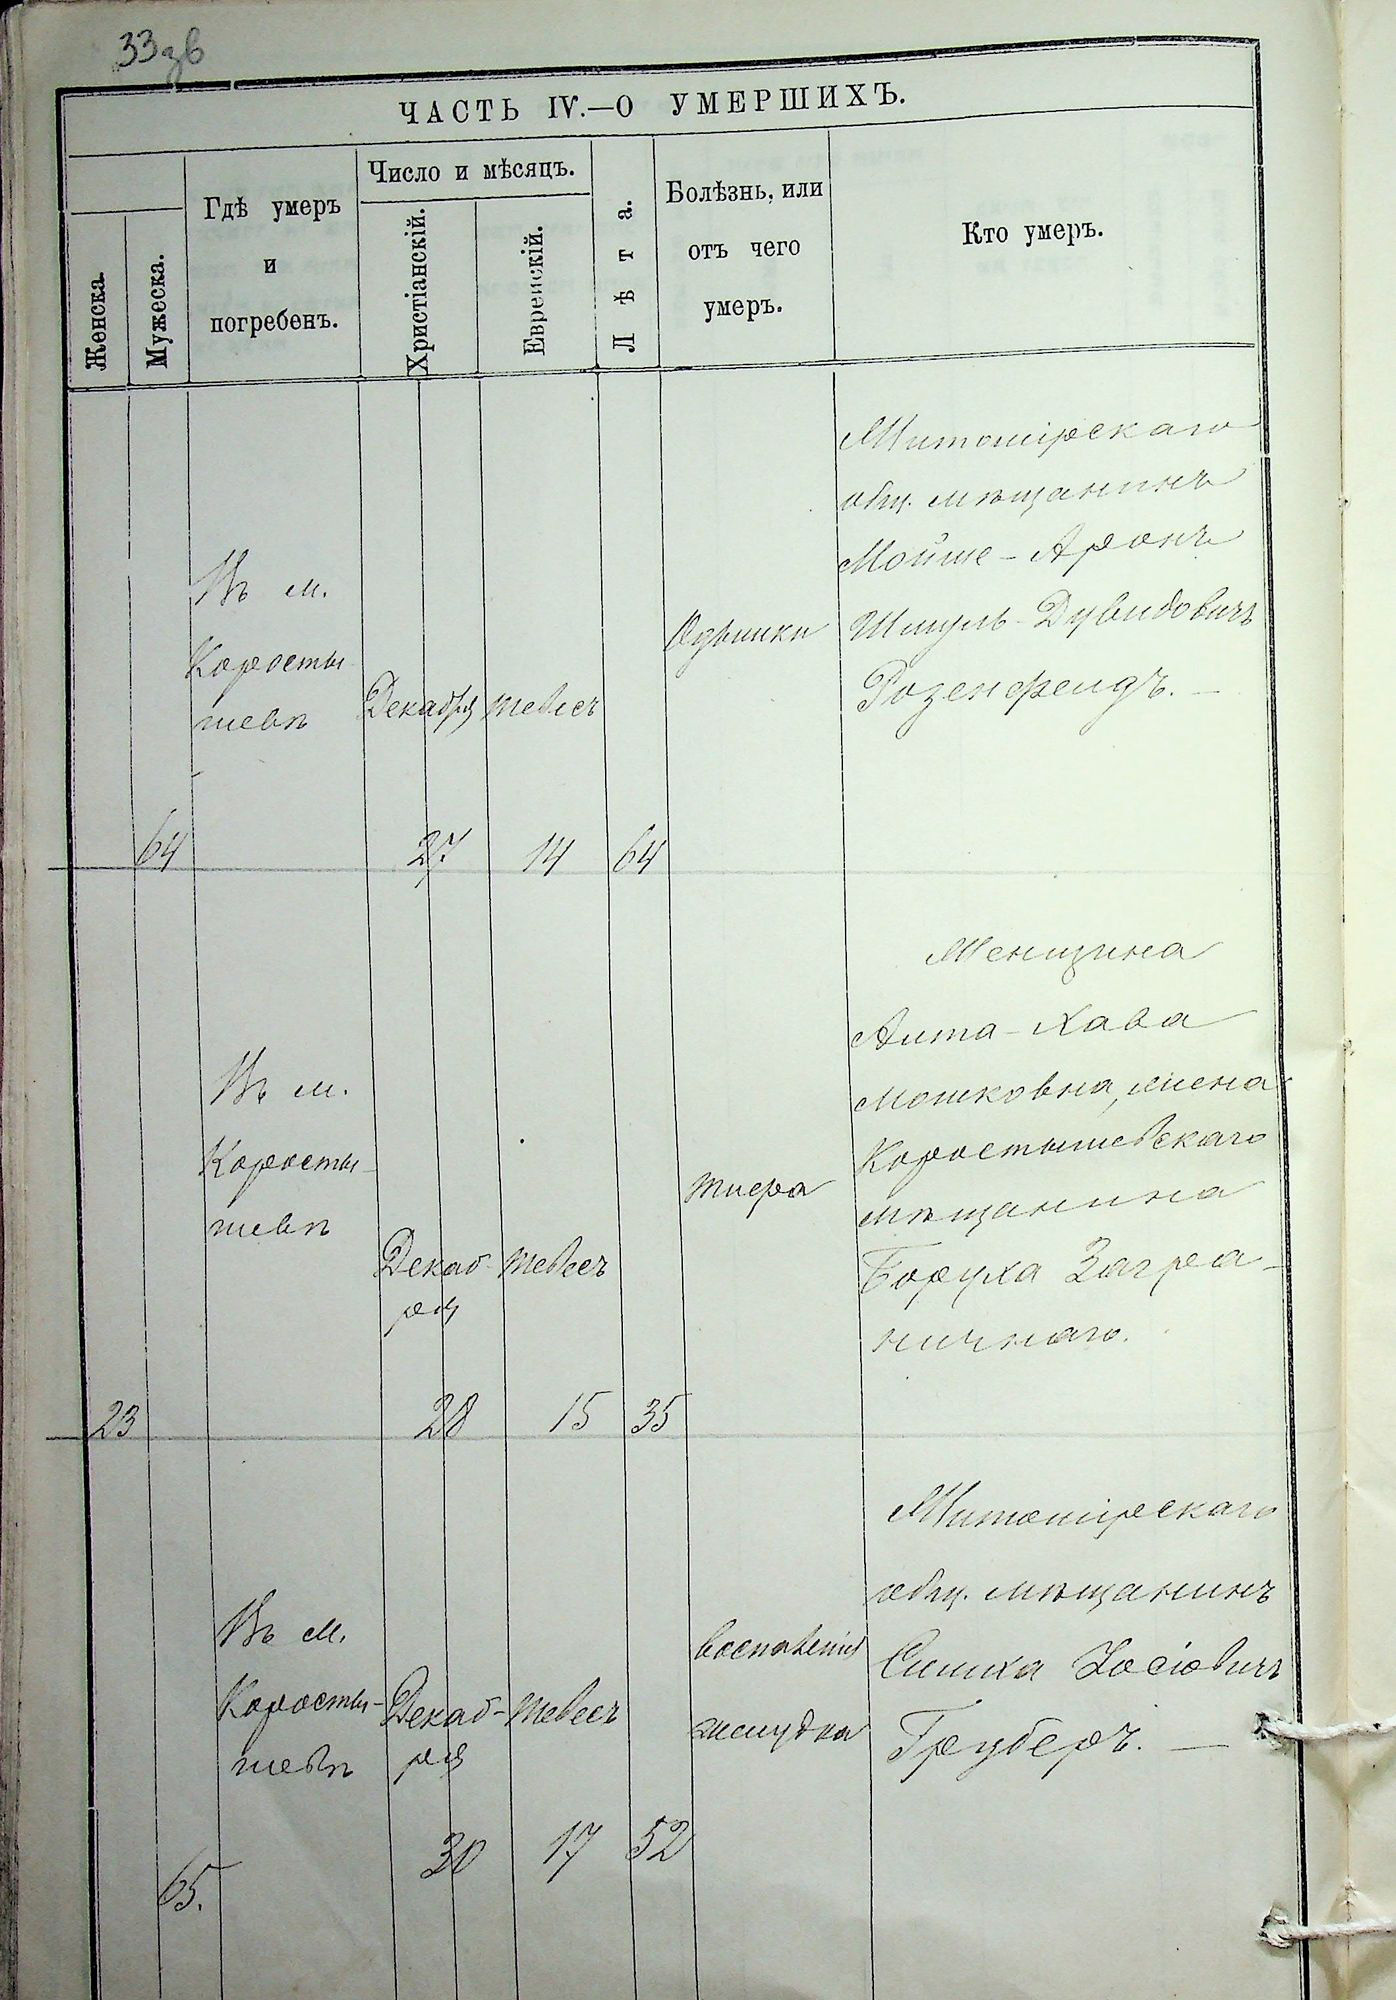 33зв
ЧАСТЬ IV.—О УМЕРШИХЪ.
Женска.
Мужеска.
Гдѣ умеръ
и
погребенъ.
Число и мѣсяцъ.
Христіанскій.
Еврейскій.
Лѣта.
Болѣзнь, или
отъ чего
умеръ.
Кто умеръ.
64
Въ м.
Коросты-
шевѣ
Декабря
27.
тевесъ
14
64
Одышки
Житомірскаго
общ. мѣщанинъ
Мойше-Аронъ
Шмуль-Дувидовичъ
Розенфелдъ. —
23
Въ м.
Коросты-
шевѣ
Декаб-
ря
28
тевесъ
15
35
тифа
Женщина
Алта-Хава
Мошковна, жена
Коростышевскаго
мѣщанина
Боруха Загра-
ничнаго.
65.
Въ м.
Коросты-
шевѣ
Декаб-
ря
30
тевесъ
17
52
воспаленія
желудка
Житомірскаго
общ. мѣщанинъ
Симха Іосіовичъ
Груберъ. —